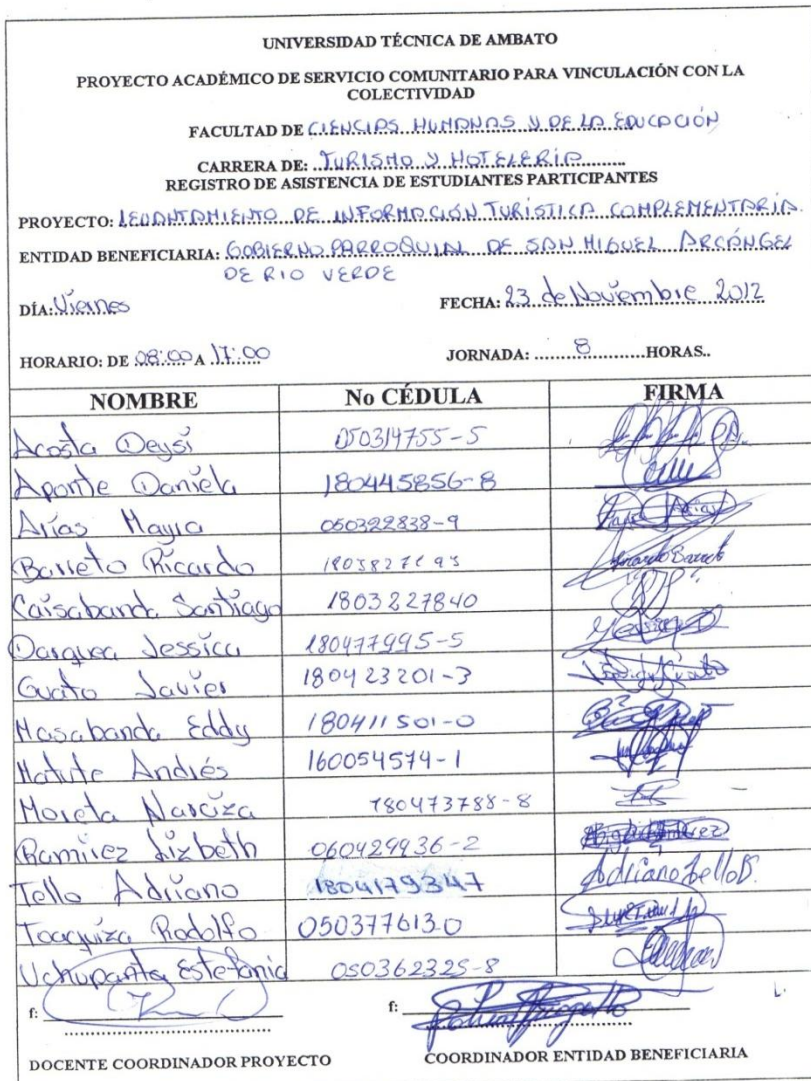 UNIVERSIDAD TÉCNICA DE AMBATO
PROYECTO ACADÉMICO DE SERVICIO COMUNITARIO PARA VINCULACIÓN CON LA
COLECTIVIDAD
FACULTAD DE CIENCIAS HUMANAS Y DE LA EDUCACIÓN
CARRERA DE: TURISMO Y HOTELERIA
REGISTRO DE ASISTENCIA DE ESTUDIANTES PARTICIPANTES
PROYECTO: LEVANTAMIENTO DE INFORMACIÓN TURÍSTICA COMPLEMENTARIA.
ENTIDAD BENEFICIARIA: GOBIERNO PARROQUIAL DE SAN MIGUEL ARCÁNGEL
DE RIO VERDE
DÍA: Viernes FECHA: 23 de Noviembre 2012
HORARIO: DE 08:00 A 17:00 JORNADA: 8 HORAS..
NOMBRE No CÉDULA FIRMA
Acosta Deysi 050314755-5
Aponte Daniela 180445856-8
Arias Mayra 050322838-9
Barreto Ricardo Ricardo Barreto
Caisabanda Santiago 1803227840
Darquea Jessica 180477995-5
Guato Javier 180423201-3
Masabanda Eddy 180411501-0
Matute Andrés 160054574-1
Moreta Narciza 180473788-8
Ramirez Lizbeth 060429936-2
Tello Adriano 1804179347 Adriano Tello B.
Toaquiza Rodolfo 050377613-0
Uchupanta Estefania 050362325-8
f: f:
DOCENTE COORDINADOR PROYECTO COORDINADOR ENTIDAD BENEFICIARIA